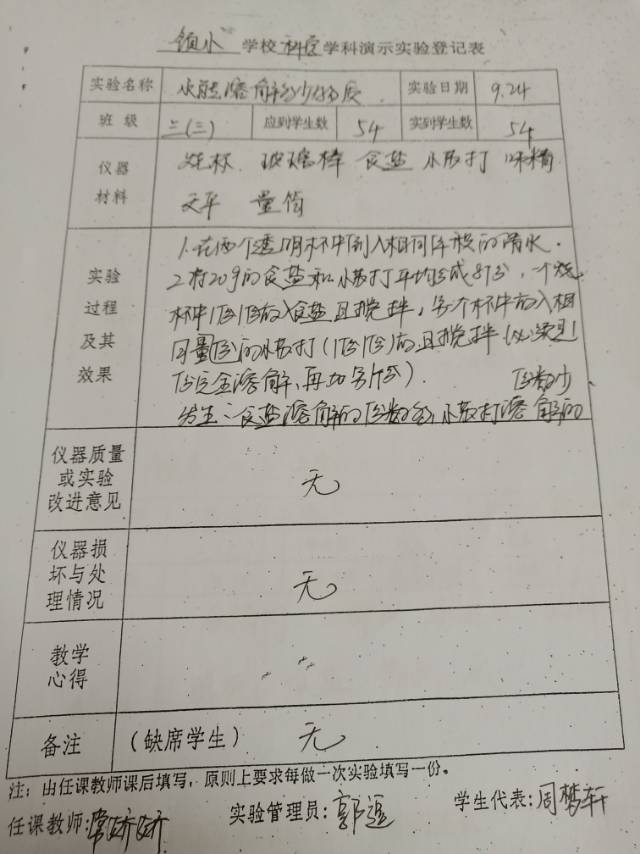 镇小 学校 科学 学科演示实验登记表
实验名称 水能溶解多少物质 实验日期 9.24
班级 三(三) 应到学生数 54 实到学生数 54
仪器材料 烧杯 玻璃棒 食盐 小苏打 味精
天平 量筒
实验过程及其效果
1.在两个透明杯中倒入相同体积的清水.
2.将20g的食盐和小苏打平均分成8份,一个烧
杯中1份1份放入食盐且搅拌,另个杯中放入相
同量份的小苏打(1份1份)的且搅拌(必须是1
份完全溶解,再加另1份).
发生:食盐溶解的份数多,小苏打溶解的
份数少.
仪器质量或实验改进意见 无
仪器损坏与处理情况 无
教学心得
备注 (缺席学生) 无
注:由任课教师课后填写,原则上要求每做一次实验填写一份。
任课教师:常娇娇 实验管理员:郭逗 学生代表:周梦轩